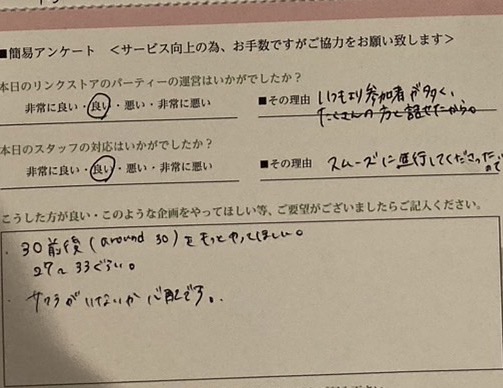 ■簡易アンケート <サービス向上の為、お手数ですがご協力をお願い致します>
本日のリンクストアのパーティーの運営はいかがでしたか?
非常に良い・良い・悪い・非常に悪い ■その理由 いつもより参加者が多く、
たくさんの方と話せたから。
本日のスタッフの対応はいかがでしたか?
非常に良い・良い・悪い・非常に悪い ■その理由 スムーズに進行してくださったので
こうした方が良い・このような企画をやってほしい等、ご要望がございましたらご記入ください。
・30前後(around 30)をもっとやってほしい。
27〜33ぐらい。
・サクラがいないか心配です。